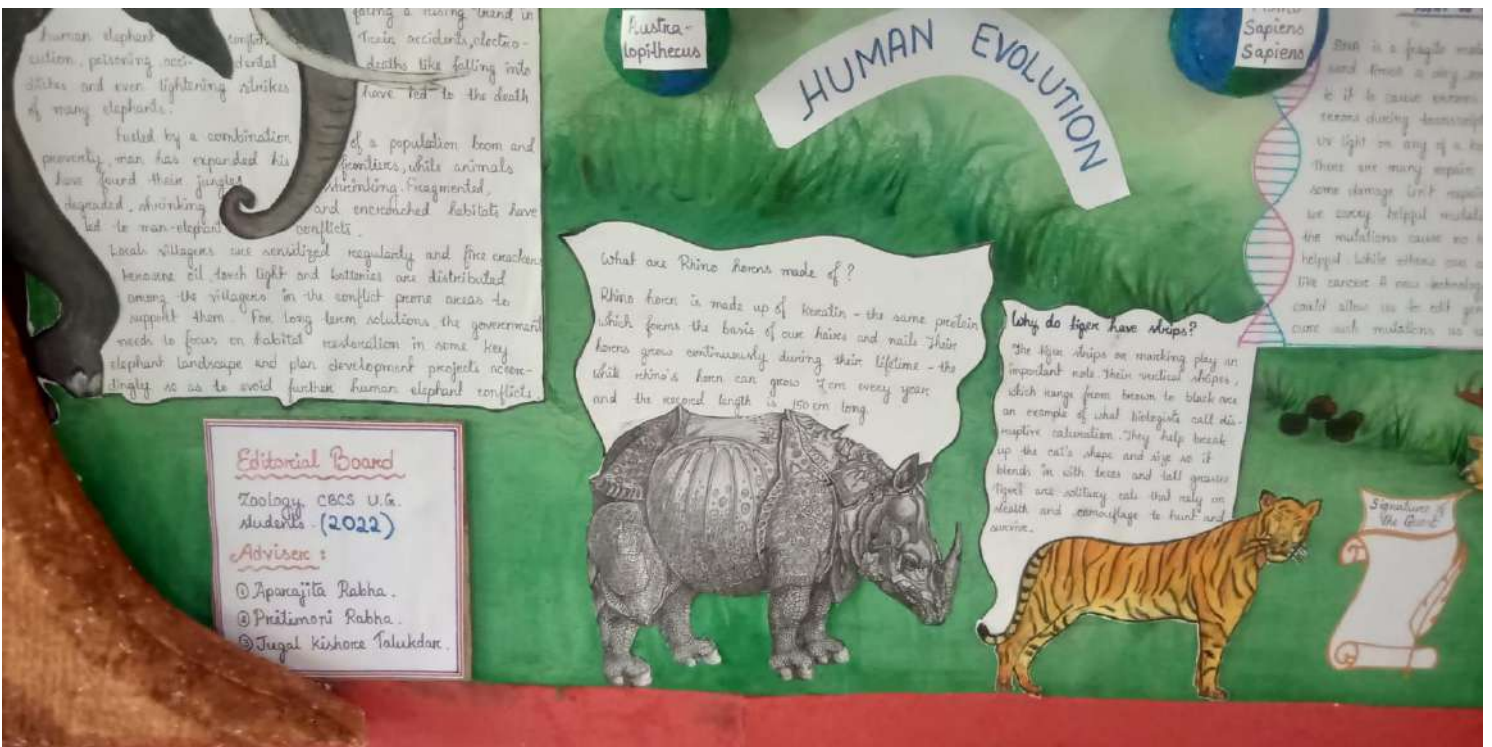 facing a rising trend in
human elephant conflict. Train accidents, electro-
cution, poisoning, acci- dental deaths like falling into
ditches and even lightening strikes have led to the death
of many elephants.
Fueled by a combination of a population boom and
proverty, man has expanded his frontiers, while animals
have found their jungles shrinking. Fragmented,
degraded, shrinking and encroached habitats have
led to man-elephant conflicts.
Locals villagers are sensitized regularly and fire crackers
kerosene oil, torch light and batteries are distributed
among the villagers in the conflict prone areas to
support them. For long term solutions, the government
needs to focus on habitat restoration in some key
elephant landscape and plan development projects accor-
dingly so as to avoid further human elephant conflicts.
Editorial Board
Zoology, CBCS U.G.
students - (2022)
Adviser :
① Aparajita Rabha.
② Pritimoni Rabha.
③ Jugal Kishore Talukdar.
Austra-
lopithecus
HUMAN EVOLUTION
Sapiens
Sapiens
What are Rhino horns made of?
Rhino horn is made up of Keratin - the same protein
which forms the basis of our haires and nails. Their
horns grow continuously during their lifetime - the
while rhino's horn can grow 7cm every year
and the record length is 150 cm long.
Why do tiger have strips?
The tiger strips or marking play an
important role. Their vertical shapes,
which range from brown to black are
an example of what biologists call dis-
ruptive colouration. They help break
up the cat's shape and size so it
blends in with trees and tall grasses
Tigers are solitary cats that rely on
stealth and camouflage to hunt and
survive.
is a fragile
to it to cause
errors during
uv light or any of a
There are many repair
some damage isn't
we carry helpful
the mutations cause no
helpful. While others can
like cancer. A new technology
could allow us to edit
cure such mutations
Signature of
the Guest